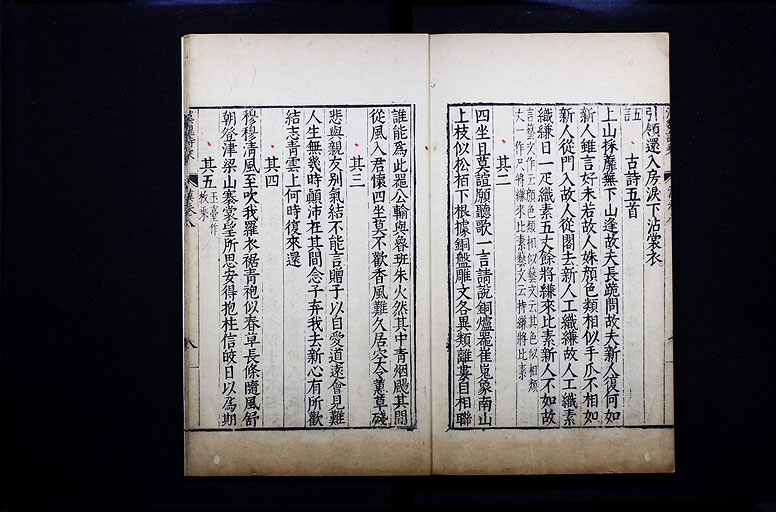 引領還入房淚下沾裳衣
五 古詩五首
上山採蘼蕪下山逢故夫長跪問故夫新人復何如
新人雖言好未若故人姝顏色類相似手爪不相如
新人從門入故人從閤去新人工織縑故人工織素
織縑日一疋織素五丈餘將縑來比素新人不如故
言藝文作云顏色類相似藝文云其色似相類
丈一作尺將縑來比素藝文云持縑將比素
其二
四坐且莫諠願聽歌一言請說銅爐器崔嵬象南山
上枝似松栢下根據銅盤雕文各異類離婁自相聯
誰能為此器公輸與魯班朱火然其中青烟颺其間
從風入君懷四坐莫不歡香風難久居空令蕙草殘
其三
悲與親友別氣結不能言贈子以自愛道遠會見難
人生無幾時顛沛在其間念子弃我去新心有所歡
結志青雲上何時復來還
其四
穆穆清風至吹我羅衣裾青袍似春草長條隨風舒
朝登津梁山褰裳望所思安得抱柱信皎日以為期
其五 玉臺作
枚乘